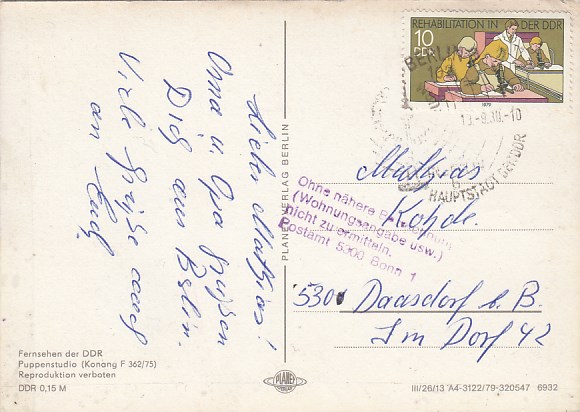 Lieber Mathias!
Oma u. Opa grüßen
Dich aus Berlin.
Viele Grüße auch
an Euch
Fernsehen der DDR
Puppenstudio (Konang F 362/75)
Reproduktion verboten
DDR 0,15 M
PLANET-VERLAG BERLIN
PLANET
REHABILITATION IN DER DDR
10
DDR
1978
BERLIN
HAUPTSTADT DER DDR
Mathias
Kohde.
Ohne nähere
(Wohnungsangabe usw.)
nicht zu ermitteln.
Postamt 5300 Bonn 1
5300 Daasdorf b. B.
Im Dorf 42
III/26/13 A4-3122/79-320547 6932